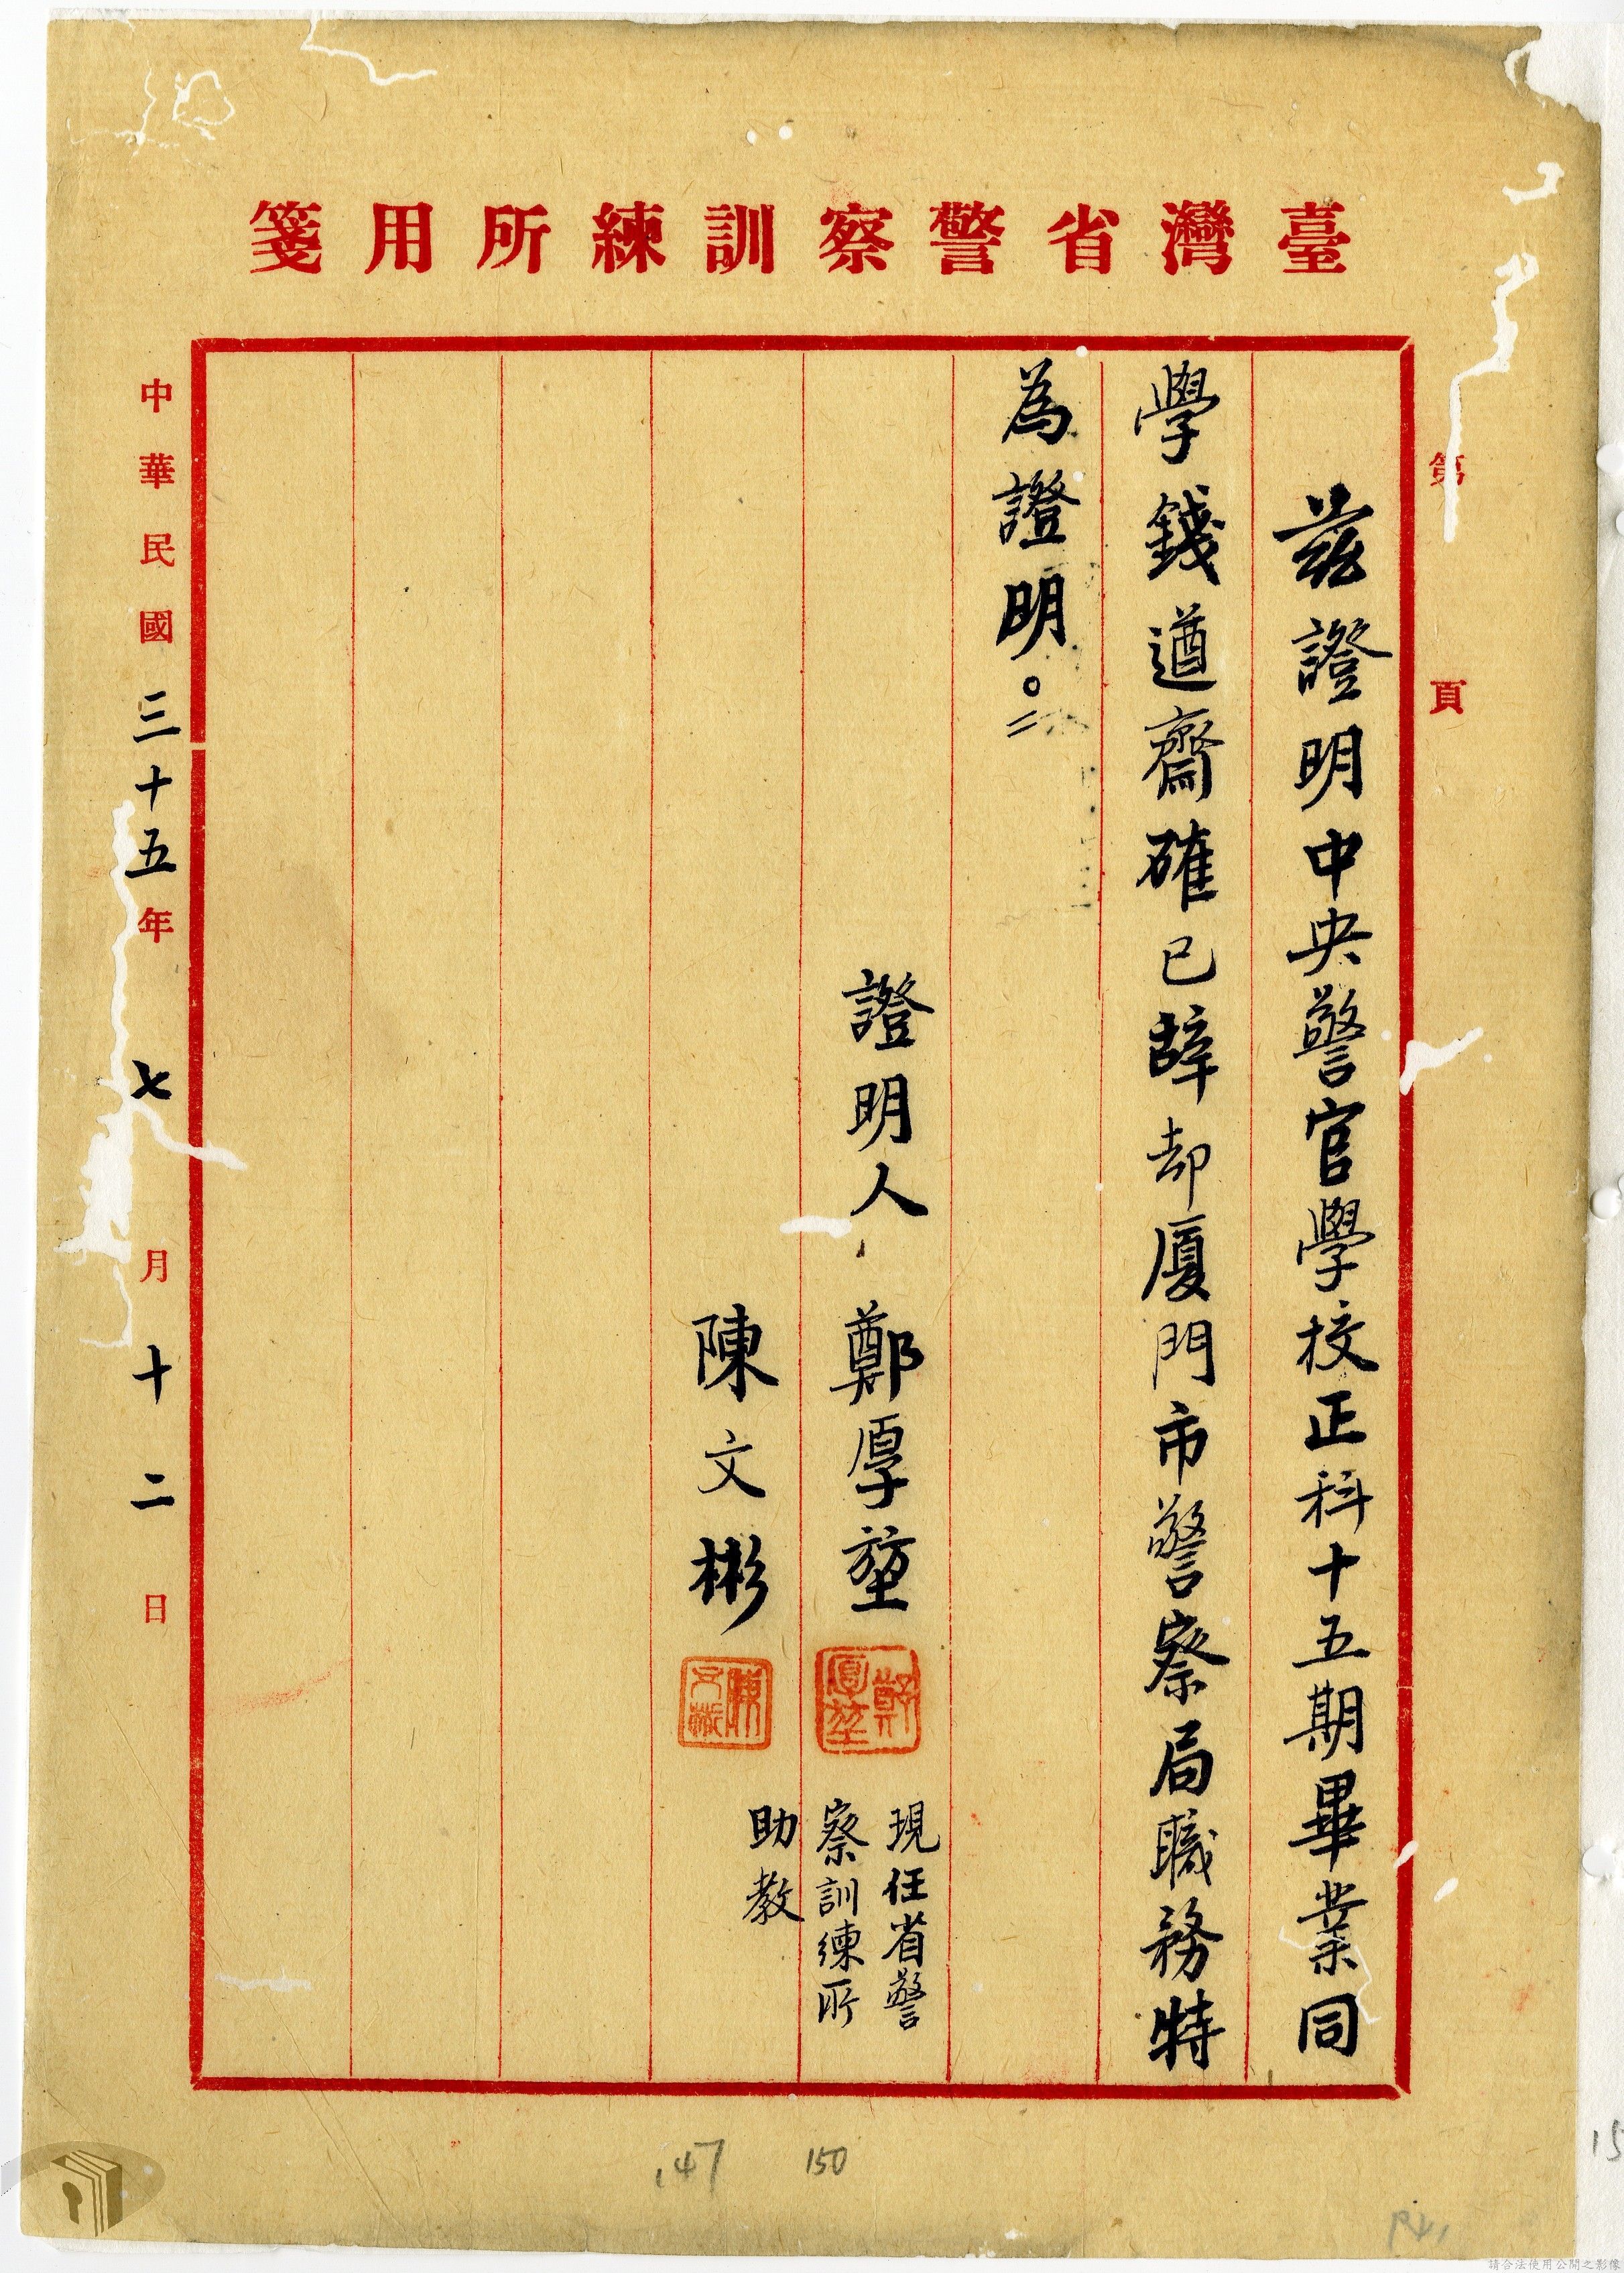 臺灣省警察訓練所用箋
第 頁
茲證明中央警官學校正科十五期畢業同
學錢遒齋確已辭却厦門市警察局職務特
為證明。
證明人 鄭厚堃
陳文彬
鄭厚堃
陳文彬
現任省警
察訓練所
助教
中華民國三十五年七月十二日
147
150
15
請合法使用公開之影像